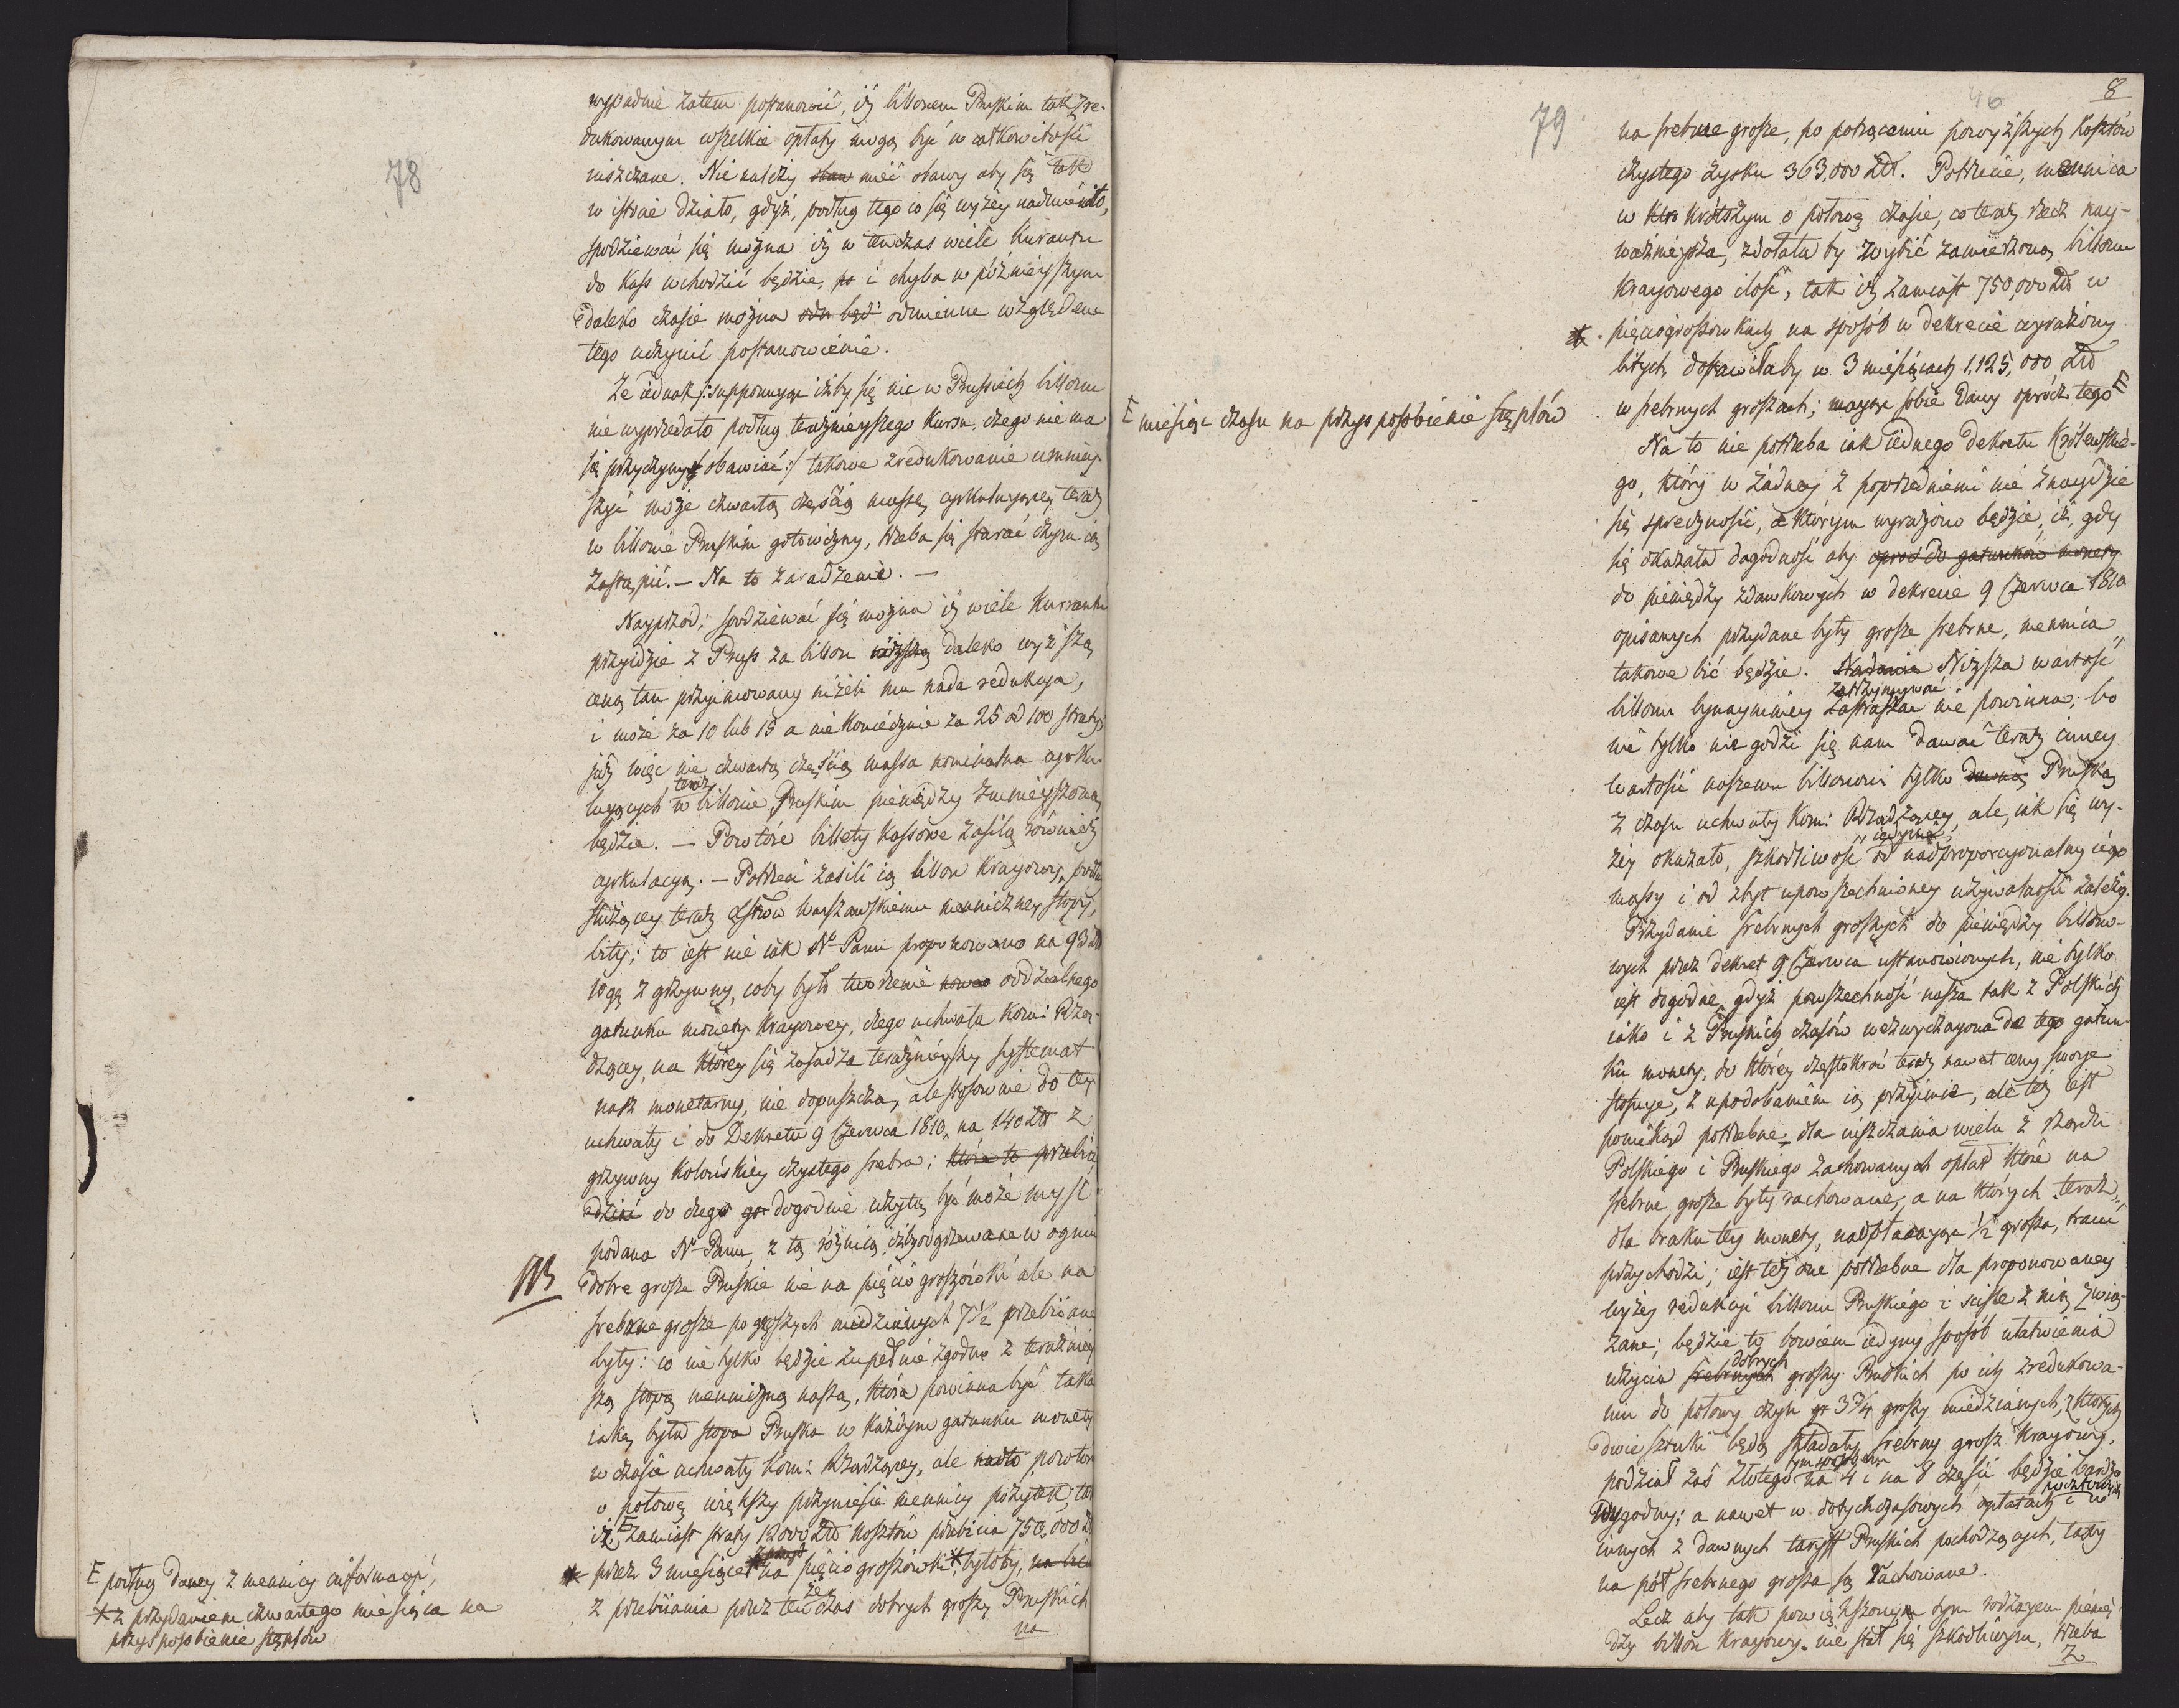 78
wypadnie zatem postanowić, iż billonem Pruskim tak zre-
dukowanym wszelkie opłaty mogą być w całkowitości
uiszczane. Nie należy mieć obawy aby się tak
w istocie działo, gdyż, podług tego co się wyżey nadmieniło,
spodziewać się można iż w ten czas wiele kurantu
do kass wchodzić będzie, i chyba w póżnieyszym
daleko czasie można odmienne względem
tego uczynić postanowienie.
Że iednak /: supponuiąc iżby się nic w Prussiech billonu
nie wyprzedało podług teraźnieyszego kursu, czego nie ma
się przyczyny obawiać :/ takowe zredukowanie umniey-
szyć może czwartą częścią massę cyrkuluiącey teraz
w billonie Pruskim gotowizny, trzeba się starać czym ią
zastąpić. — Na to zaradzenie. —
Nayprzod; spodziewać się można iż wiele kurrantu
przyidzie z Pruss za billon daleko wyższą
ceną tam przyimowany niżeli mu nada redukcya,
i może za 10 lub 15 a nie koniecznie za 25 od 100 straty,
już więc nie czwartą częścią massa nominalna cyrku-
luiących teraz w billonie Pruskim pieniędzy zmnieyszoną
będzie. — Powtóre billety kassowe zasilą również
cyrkulacyą. — Potrzecie zasili ią billon kraiowy, podług
służącey teraz Xstwu Warszawskiemu menniczney stopy,
bity; to iest nie iak Nu Panu proponowano na 93 Zł
10 gr z grzywny, coby było tworzenie oddzielnego
gatunku monety kraiowey, czego uchwała Kom: Rzą-
dzącey, na którey się zasadza teraźnieyszy systemat
nasz monetarny, nie dopuszcza, ale stosownie do tey
uchwały i do Dekretu 9 Czerwca 1810, na 140 Złł z
grzywny Kolońskiey czystego srebra; która to przebić
do czego dogodnie użytą być może myśl
podana Nu Panu, z tą różnicą, iżby odgrzewane w ogniu
NB
dobre grosze Pruskie nie na pięcio groszówki ale na
srebrne grosze po groszych miedzianych 7½ przebiiane
były: co nie tylko będzie zupełnie zgodne z teraźniey
szą stopą menniczną naszą, która powinna być taka
iaką była stopa Pruska w każdym gatunku monety
w czasie uchwały Kom: Rządzącey, ale powtór
o połowę większy przyniesie mennicy pożytek; tak
iż, E zamiast straty 12000 Złł kosztów przebicia 750,000 Zł
* przez 3 miesiące na pięcio groszówki * byłoby,
z przebiiania przez tenże czas dobrych groszy Pruskich
na
E podług daney z mennicy informacyi,
* z przydaniem czwartego miesiąca na
przysposobienie stęplów
79
46
8
na srebrne grosze, po potrąceniu powyższych kosztów
czystego zysku 363,000 Złł. Potrzecie, mennica
w krótszym o połowę czasie, co teraz rzecz nay-
ważnieysza, zdołała by wybić zamierzoną billonu
kraiowego ilość, tak iż zamiast 750,000 Złł w
* pięciogroszówkach na sposób w dekrecie wyrażony
bitych, dostawiłaby w 3 miesiącach 1.125,000 Złł
w srebrnych groszach; maiąc sobie dany oprócz tego E
E miesiąc czasu na przysposobienie stęplów
Na to nie potrzeba iak iednego dekretu Królewskie-
go, który w żadney z poprzedniemi nie znaydzie
się sprzeczności, w którym wyrażono będzie, iż, gdy
się okazała dogodność aby oprócz do gatunków monety
do pieniędzy zdawkowych w dekrecie 9 Czerwca 1810
opisanych przydane były grosze srebrne, mennica
takowe bić będzie. Niższa wartość
billonu bynaymniey zatrzymywać zastraszać nie powinna; bo
nie tylko nie godzi się nam dawać teraz inney
wartości naszemu billonowi tylko Pruską
z czasu uchwały Kom: Rządzącey, ale, iak się wy-
żey okazało, szkodliwość iedynie od nadproporcyonalney iego
massy i od zbyt upowszechnioney używalności zależy.
Przydanie srebrnych groszych do pieniędzy billono-
wych przez dekret 9 Czerwca ustanowionych, nie tylko
iest dogodne gdyż powszechność nasza tak z Polskich
iako i z Pruskich czasów wezwyczaiona do tego gatun-
ku monety, do którey częstokroć teraz nawet ceny swoie
stosuie, z upodobaniem ią przyimie, ale też iest
poniekąd potrzebne dla uiszczania wielu z rządu
Polskiego i Pruskiego zachowanych opłat które na
srebrne grosze były rachowane, a na których teraz,
dla braku tey monety, nadpłacaiąc ½ grosza, tracić
przychodzi; iest też one potrzebne dla proponowaney
wyżey redukcyi billonu Pruskiego i ściśle z nią zwią-
zane; będzie to bowiem iedyny sposób ułatwienia
użycia srebrnych dobrych groszy Pruskich po ich zredukowa-
niu do połowy czyli 3¾ groszy miedzianych, z których
dwie sztuki będą składały srebrny grosz kraiowy,
podział zaś złotego tym sposobem na 4 i na 8 części będzie bardzo
wygodny; a nawet w dotychczasowych opłatach pocztowych i in
innych z dawnych taryff Pruskich pochodzących, taxy
na pół srebrnego grosza są zachowane.
Lecz aby tak powiększonym tym rodzaiem pienię
dzy billon kraiowy nie stał się szkodliwym, trzeba
z